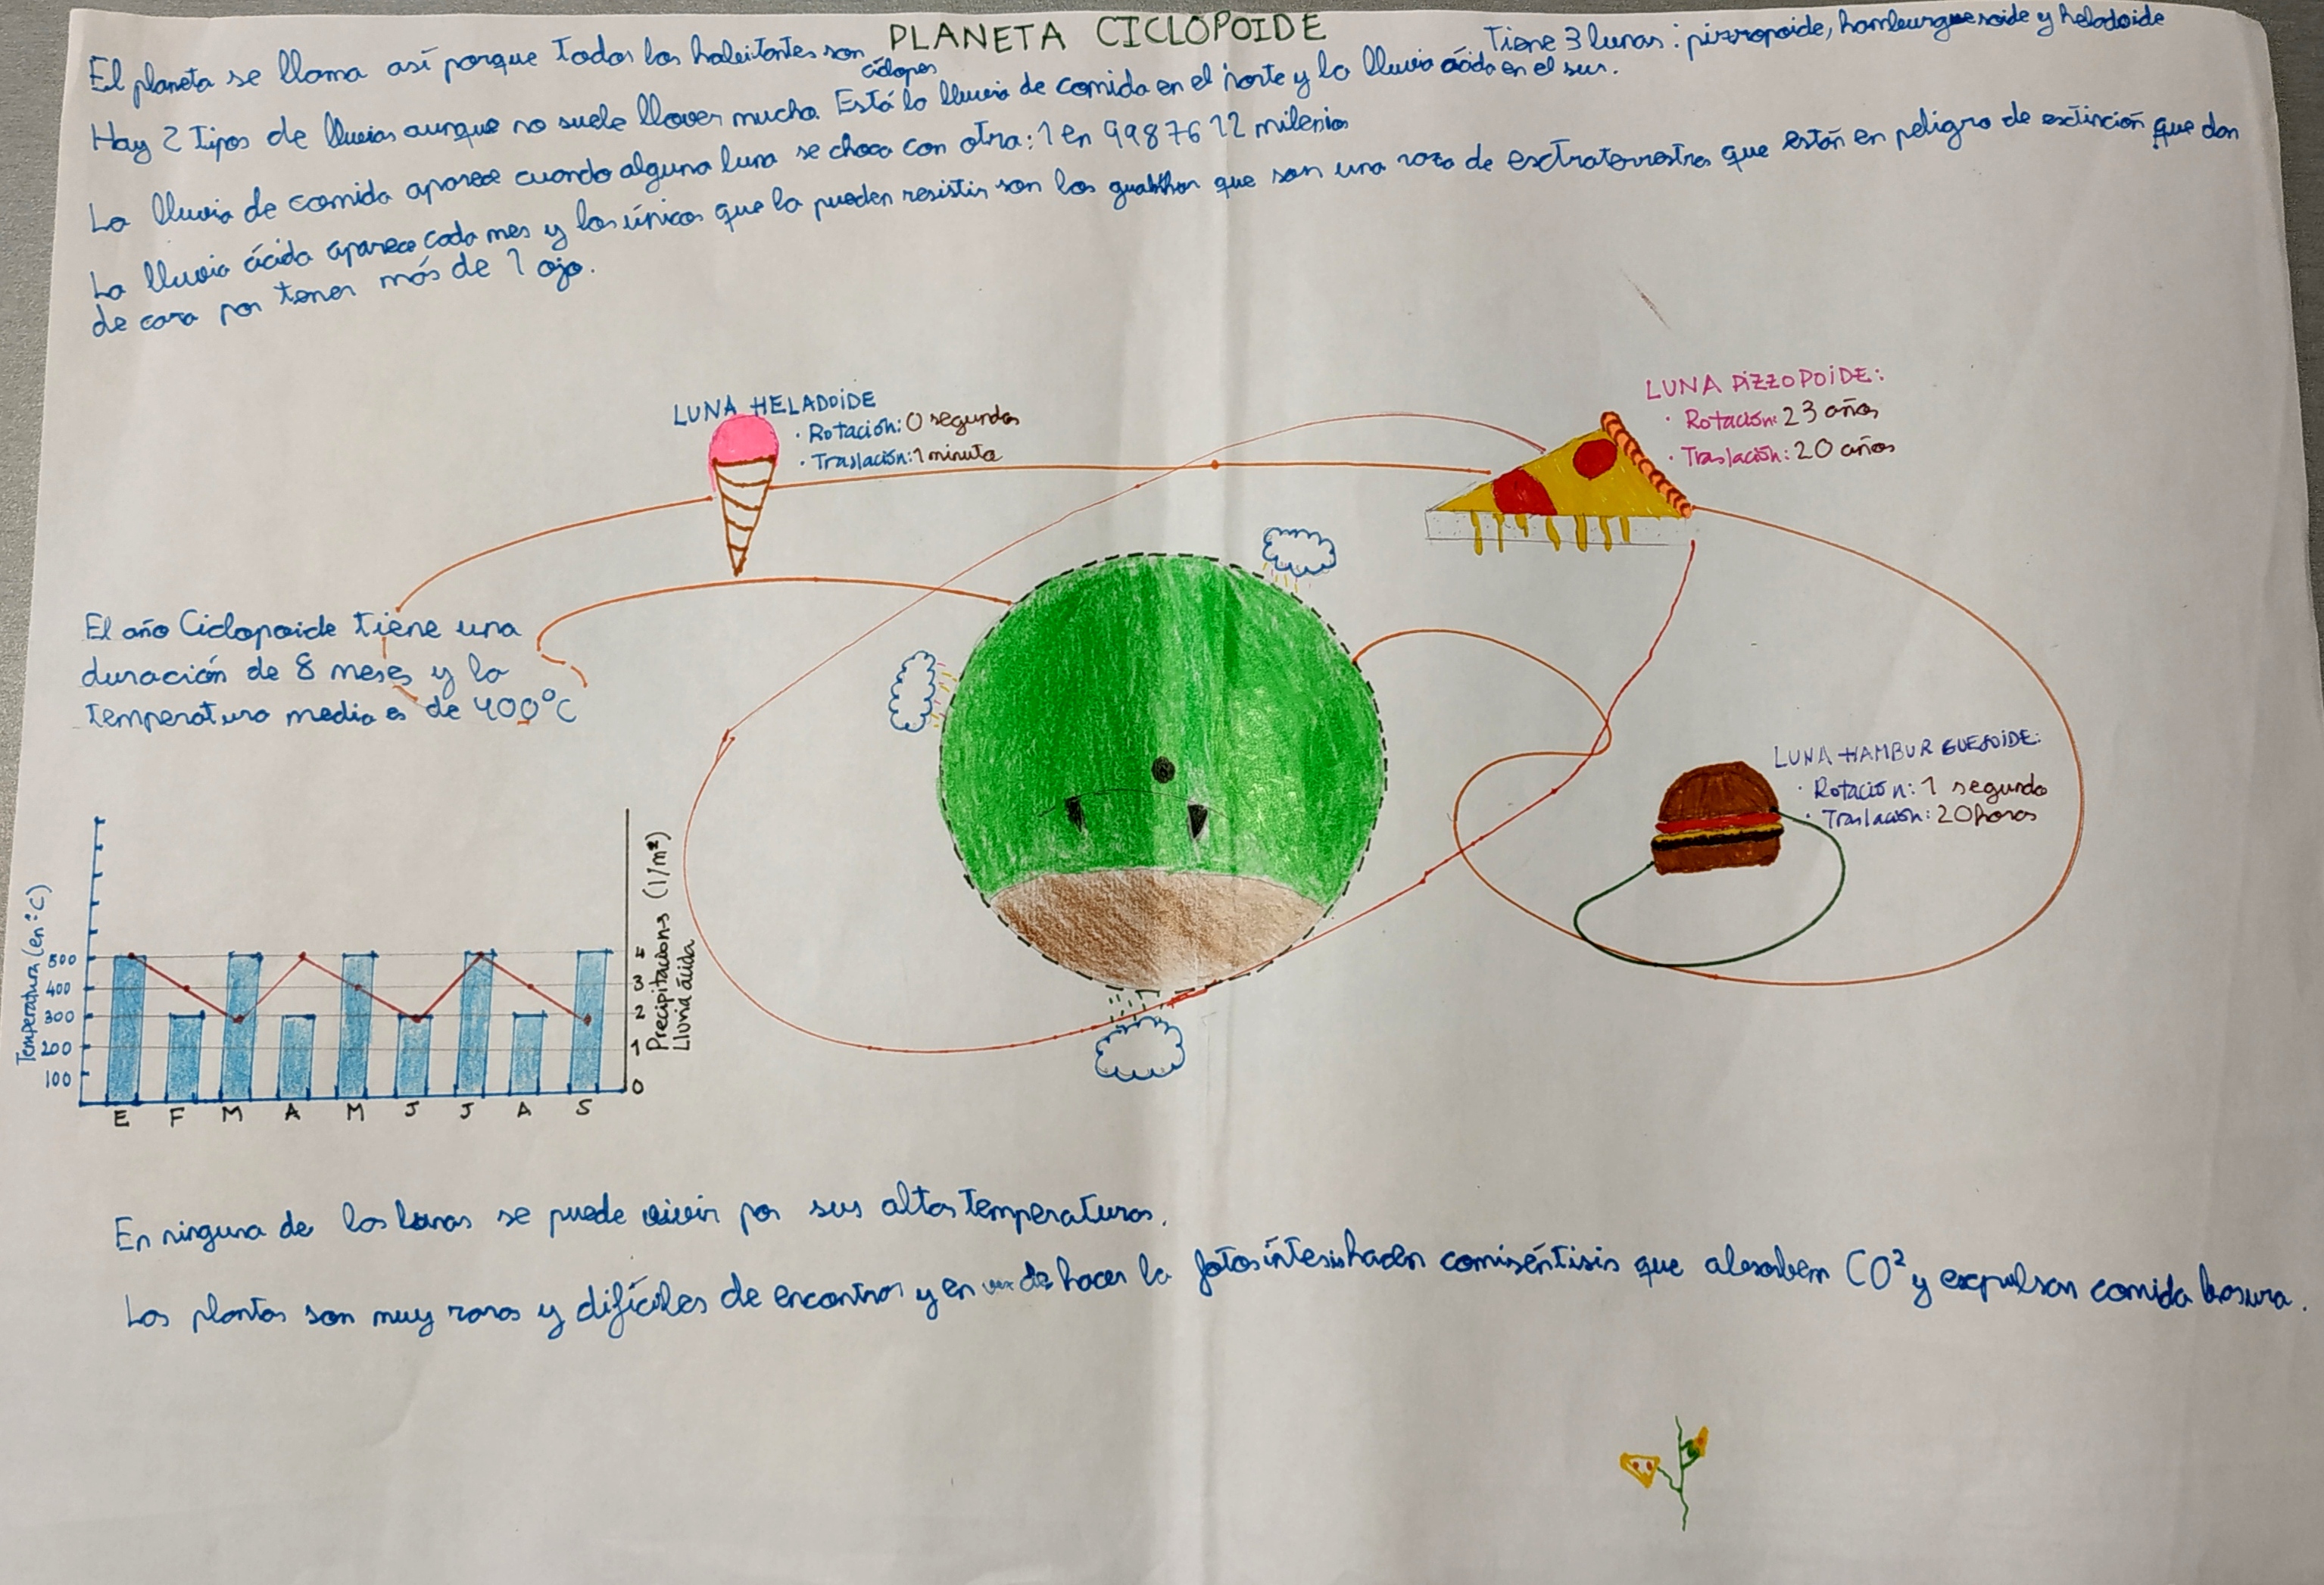 PLANETA CICLOPOIDE
El planeta se llama así porque todos los habitantes son cíclopes
Tiene 3 lunas: pizzopoide, hamburguesoide y heladoide
Hay 2 tipos de lluvias aunque no suele llover mucho. Está la lluvia de comida en el norte y la lluvia ácida en el sur.
La lluvia de comida aparece cuando alguna luna se choca con otra: 1 en 99876 12 milenios
La lluvia ácida aparece cada mes y los únicos que la pueden resistir son los que son una raza de esctraterrestres que están en peligro de esctinción que dan
de cara por tener más de 1 ojo.
LUNA HELADOIDE
· Rotación: 0 segundos
· Traslación: 1 minuto
LUNA PIZZOPOIDE:
· Rotación: 23 años
· Traslación: 20 años
El año Ciclopoide tiene una
duración de 8 meses y la
temperatura media es de 400°C
LUNA HAMBURGUESOIDE:
· Rotación: 1 segundo
· Traslación: 20 horas
Temperatura (en °C)
500
400
300
200
100
E F M A M J J A S
3
2
1
0
Precipitaciones (l/m²)
Lluvia ácida
En ninguna de las lunas se puede vivir por sus altas temperaturas.
Las plantas son muy raras y difíciles de encontrar y en vez de hacer la fotosíntesis hacen comiséntisis que absorben CO² y expulsan comida basura.